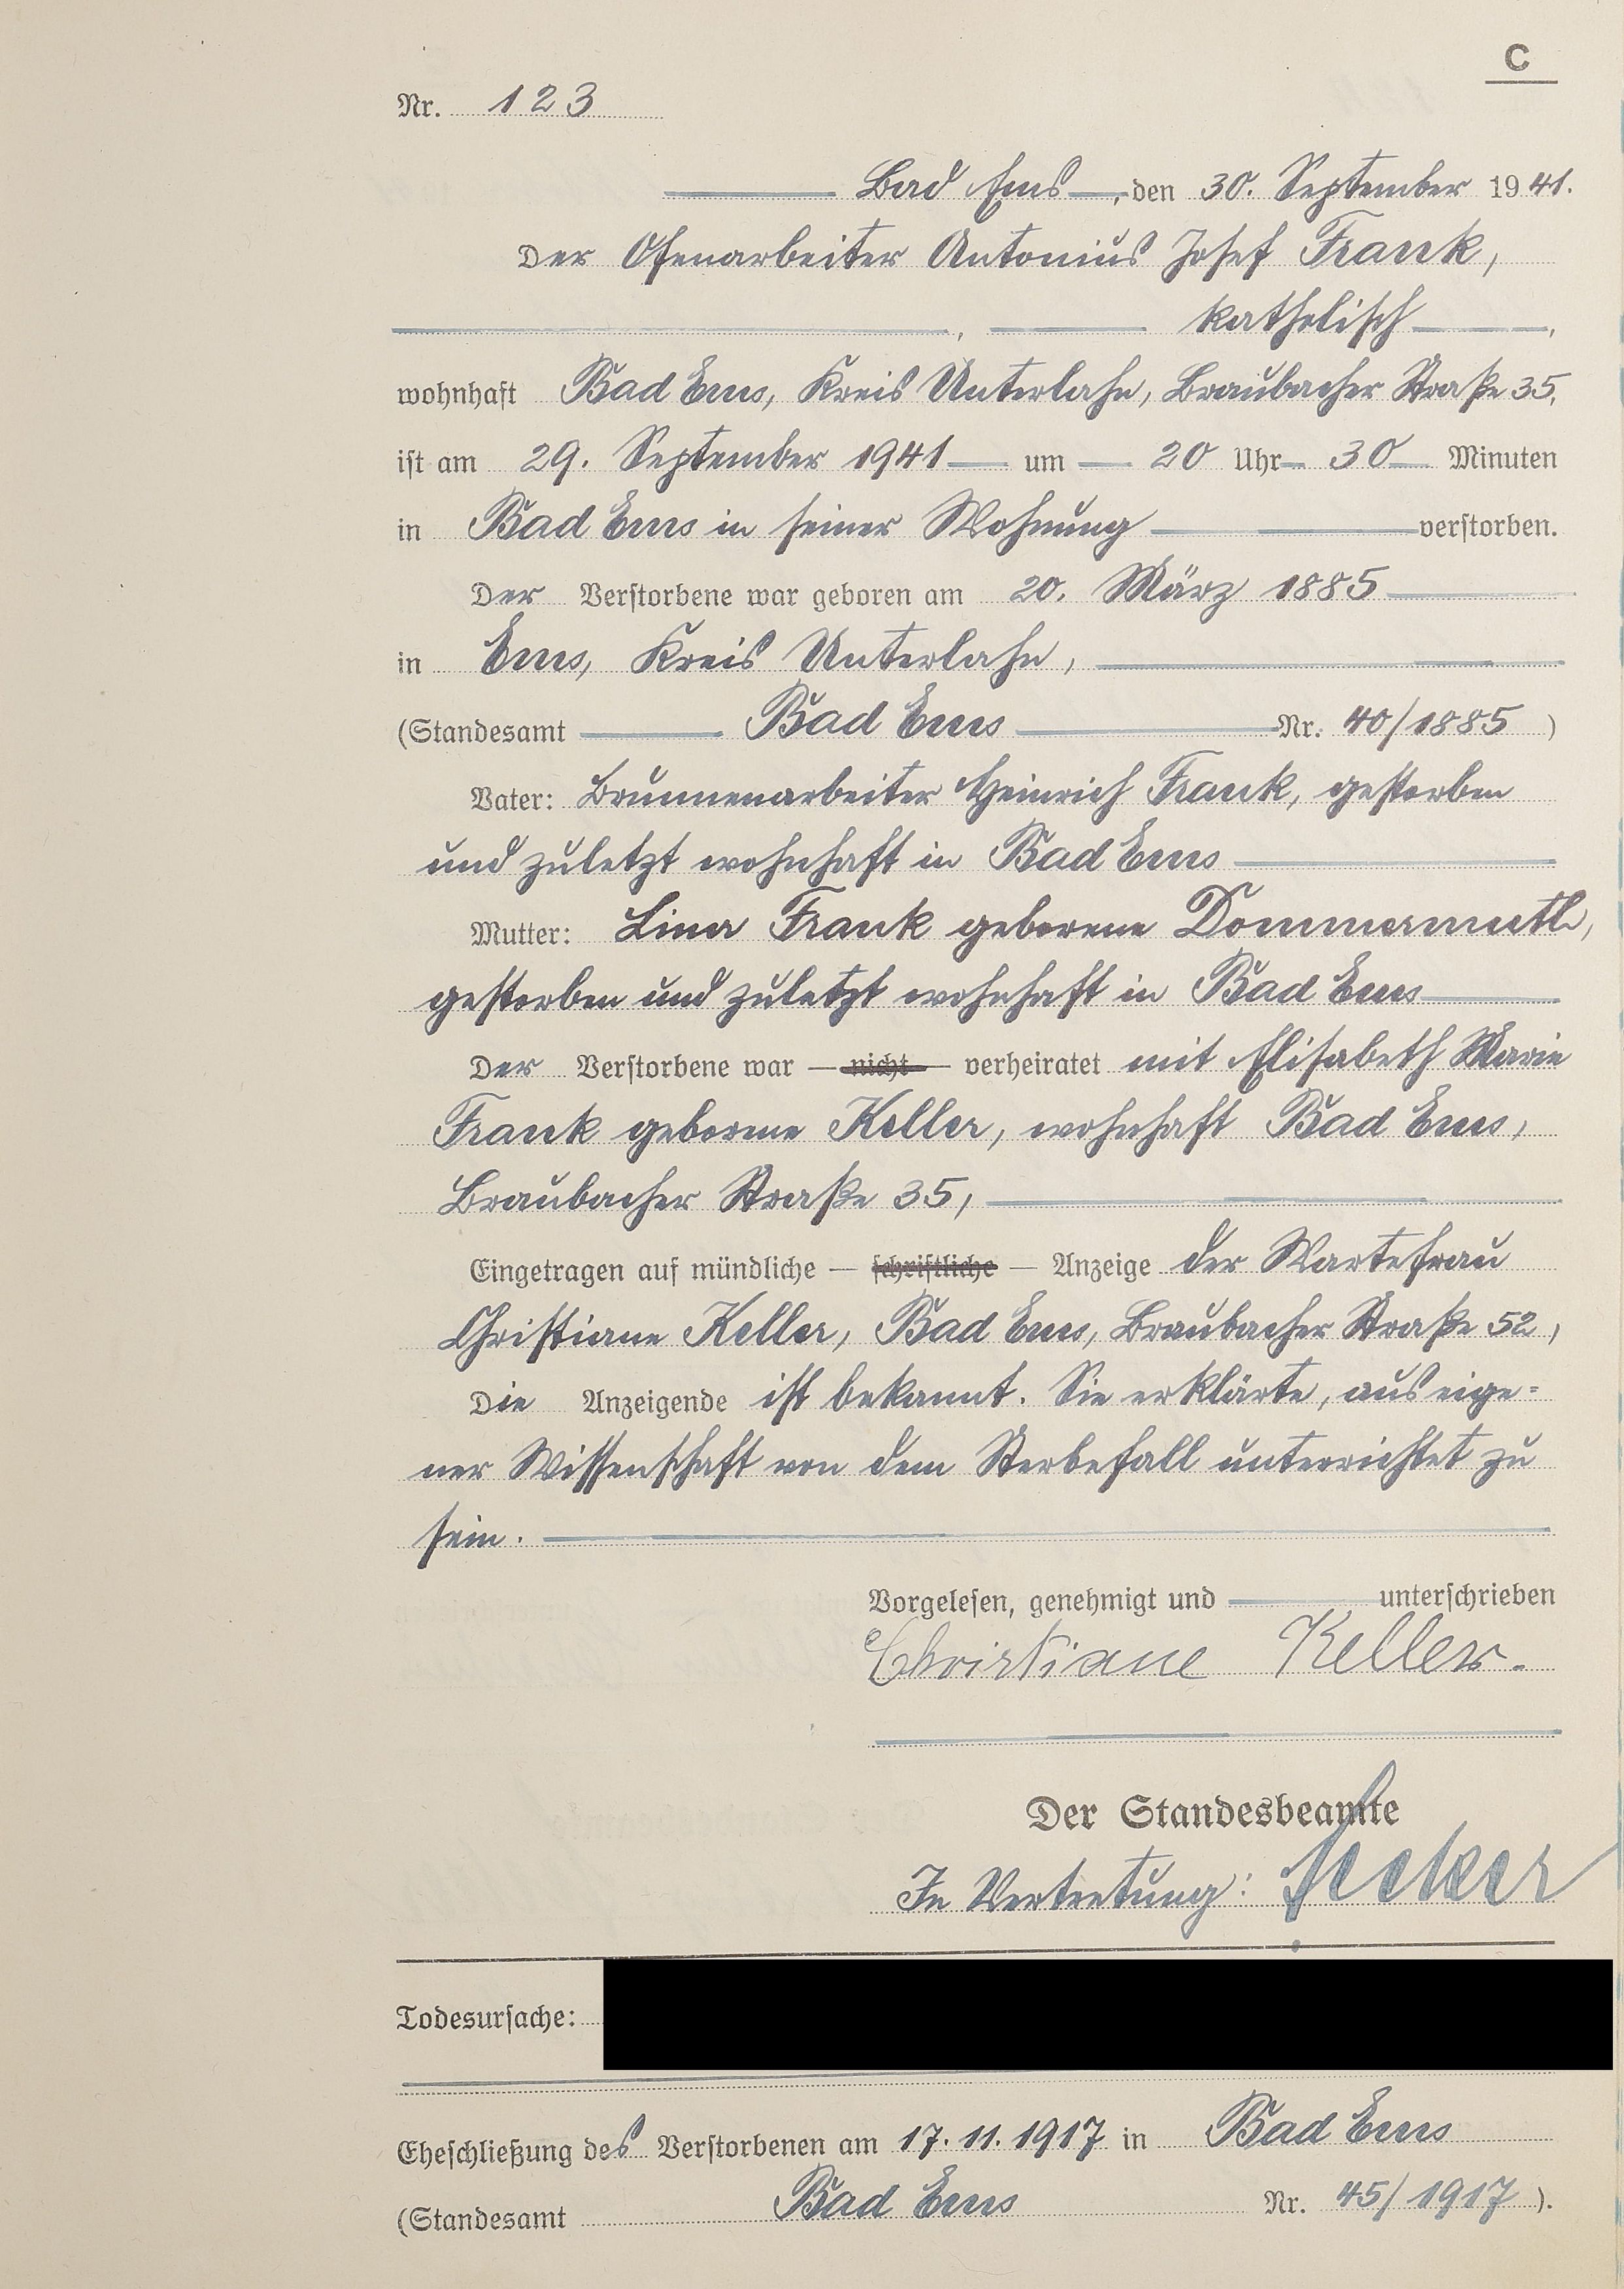 C
Nr. 123
Bad Ems, den 30. September 1941.
Der Ofenarbeiter Antonius Josef Frank,
, katholisch,
wohnhaft Bad Ems, Kreis Unterlahn, Braubacher Straße 35,
ist am 29. September 1941 um 20 Uhr 30 Minuten
in Bad Ems in seiner Wohnung verstorben.
Der Verstorbene war geboren am 20. März 1885
in Ems, Kreis Unterlahn,
(Standesamt Bad Ems Nr. 40/1885)
Vater: Brunnenarbeiter Heinrich Frank, gestorben
und zuletzt wohnhaft in Bad Ems
Mutter: Lina Frank geborene Dommermuth,
gestorben und zuletzt wohnhaft in Bad Ems
Der Verstorbene war — nicht — verheiratet mit Elisabeth Marie
Frank geborene Keller, wohnhaft Bad Ems,
Braubacher Straße 35,
Eingetragen auf mündliche — schriftliche — Anzeige der Wartefrau
Christiane Keller, Bad Ems, Braubacher Straße 52,
Die Anzeigende ist bekannt. Sie erklärte, aus eige=
ner Wissenschaft von dem Sterbefall unterrichtet zu
sein.
Vorgelesen, genehmigt und unterschrieben
Christiane Keller.
Der Standesbeamte
In Vertretung:
Todesursache:
Eheschließung des Verstorbenen am 17.11.1917 in Bad Ems
(Standesamt Bad Ems Nr. 45/1917).